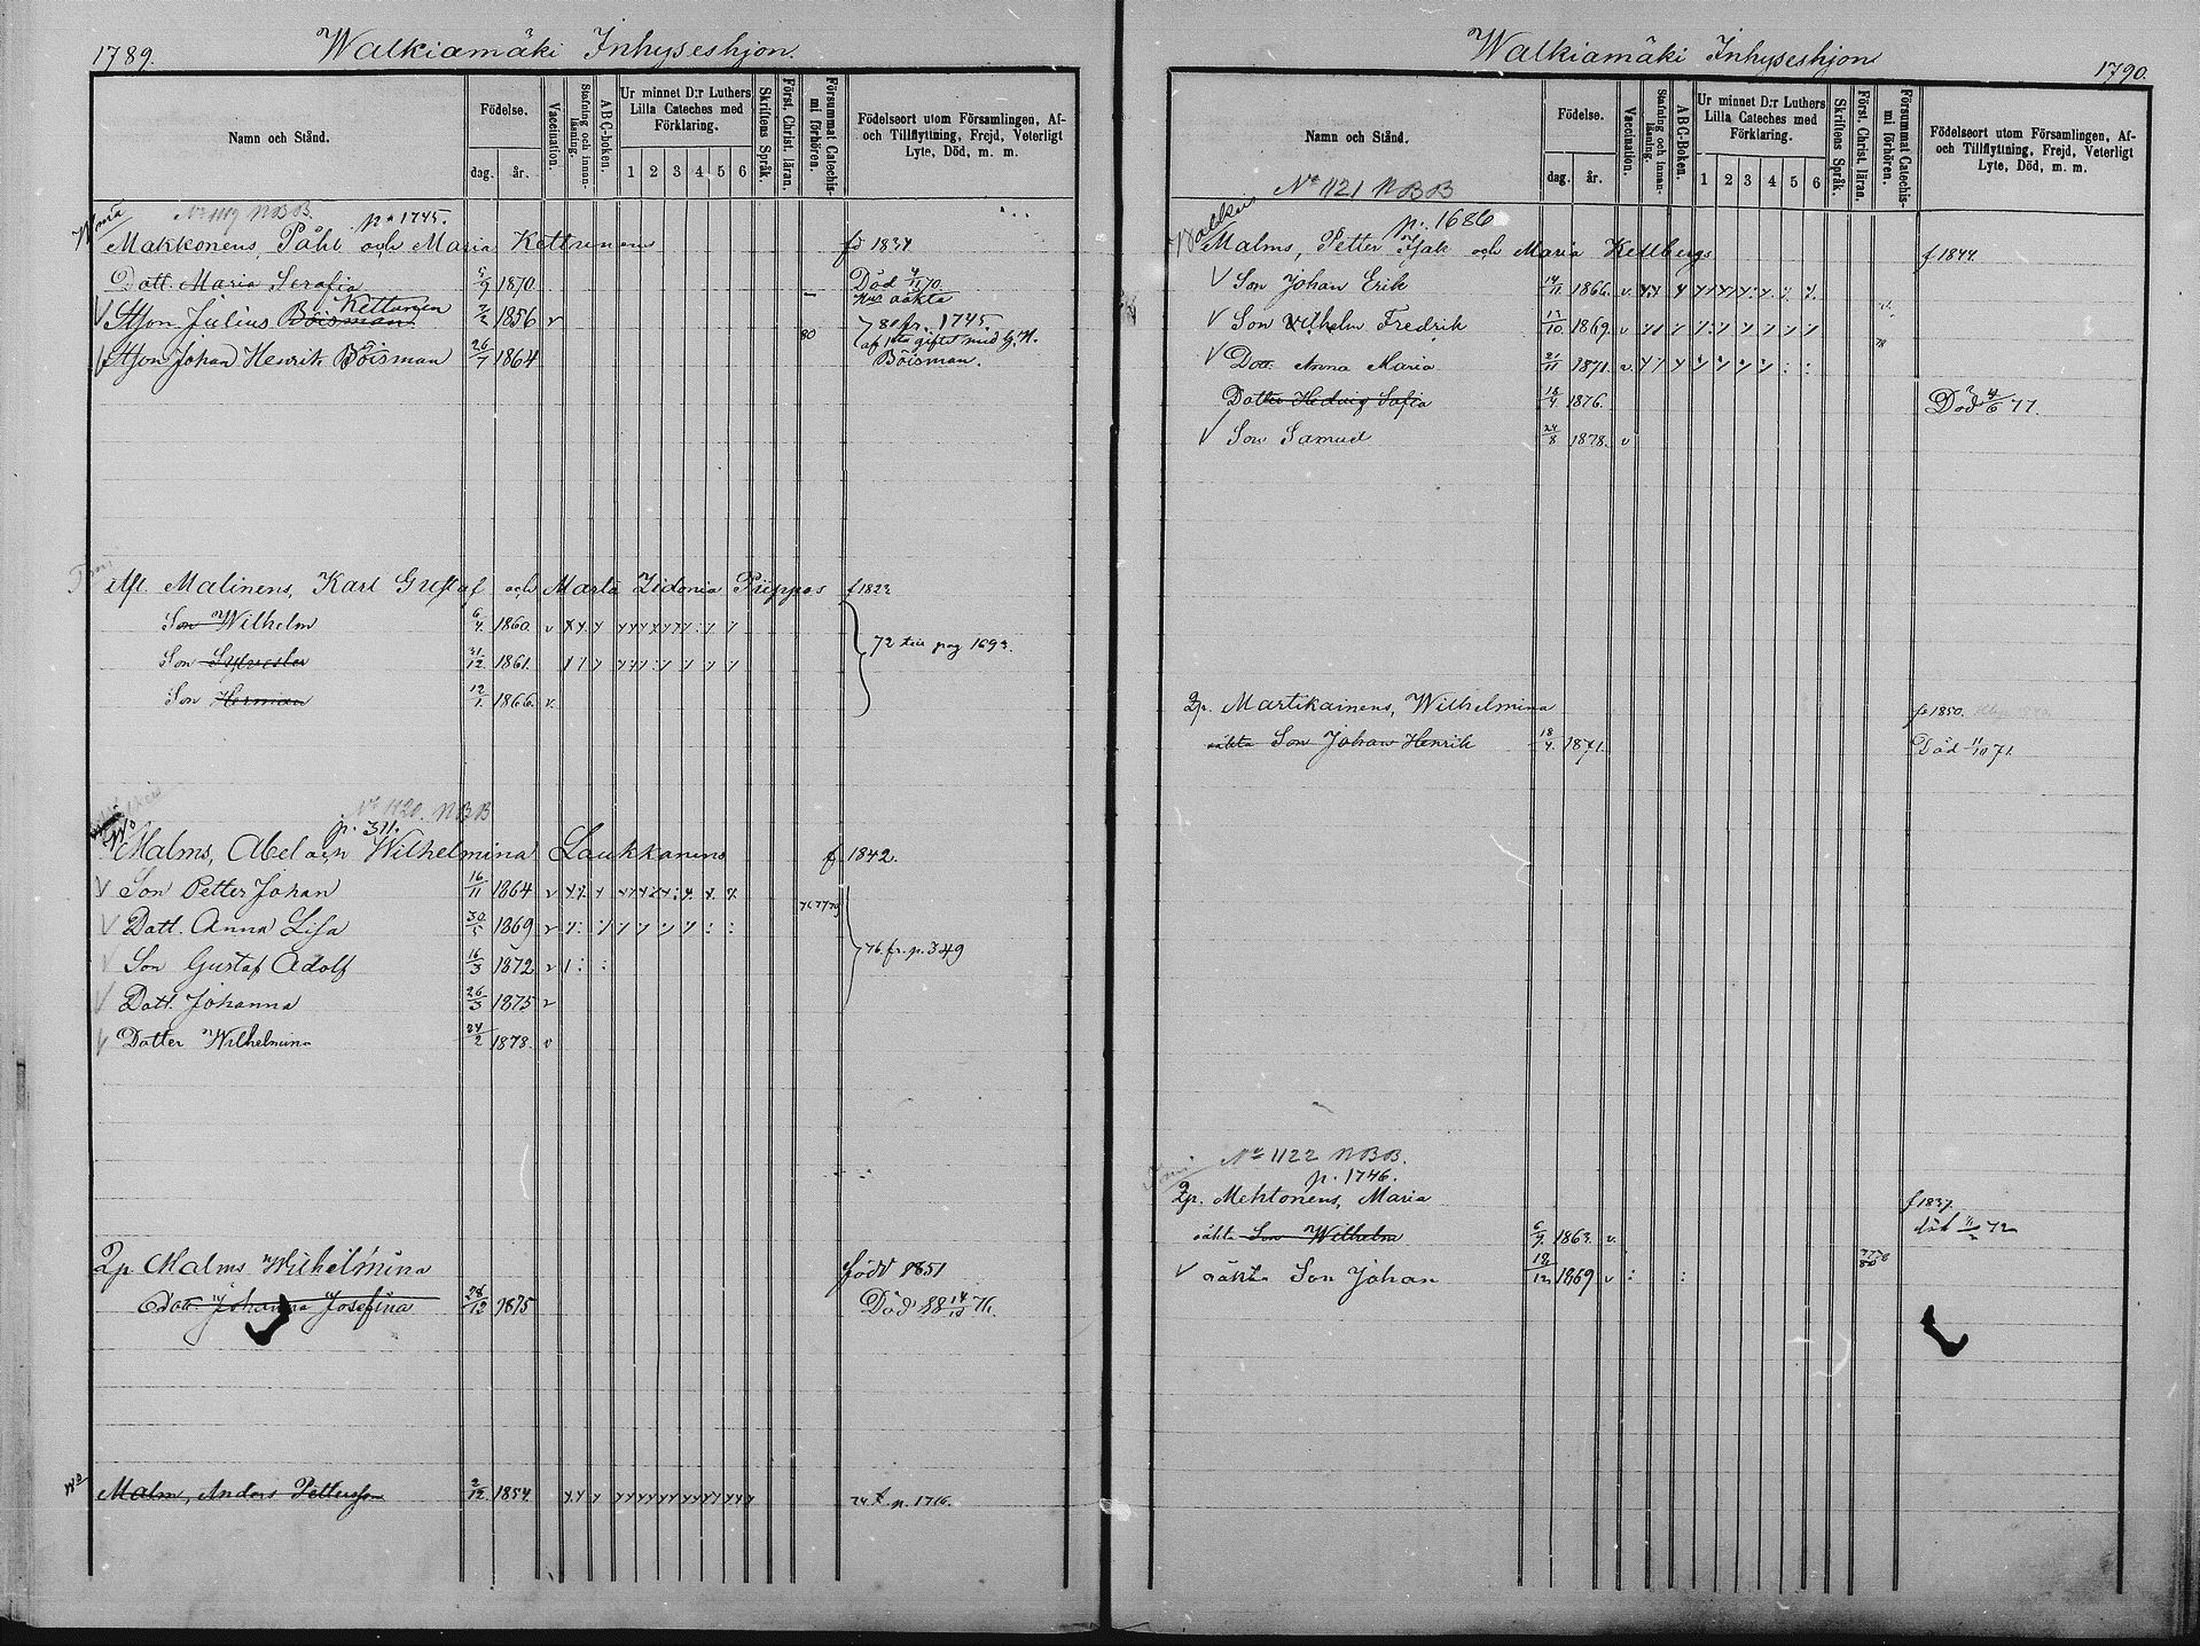 1789.
Walkiamäki Inhyseshjon.
Namn och Stånd.
Födelse.
dag.
år.
Vaccination.
Stafning och innanläsning.
ABC-boken.
Ur minnet D:r Luthers Lilla Cateches med Förklaring.
1 2 3 4 5 6
Skriftens Språk.
Först. Christ. läran.
Försummat Catechismi förhören.
Födelseort utom Församlingen, Af- och Tillflyttning, Frejd, Veterligt Lyte, Död, m. m.
No 1119 NBB.
p. 1745.
Makkonens, Påhl och Maria Kettunens f 1834
Dott. Maria Serafia 5/9 1870. Död 4/11 70.
oäkta
Kettunen
Stson Julius Böisman 7/2 1856 v 80 fr. 1745.
af 1sta giftet med
Stson Johan Henrik Böisman 26/7 1864 80 Böisman.
Afl. Malinens, Karl Gustaf och Marta Zidonia Piippos f 1822
Son Wilhelm 6/4. 1860. v
Son Sylvester 31/12. 1861. 72 till pag 1693.
Son Herman 12/1. 1866. v.
No 1120. NBB
p. 311.
Malms, Abel och Wilhelmina Laukkanens f 1842.
Son Petter Johan 16/11 1864 v
76 77 79
Dott. Anna Lisa 30/5 1869 v
76. fr. p. 349
Son Gustaf Adolf 16/3 1872 v
Dott. Johanna 26/3 1875 v
Dotter Wilhelmina 24/2 1878. v
Qp. Malms Wilhelmina född 1851
Dott. Johanna Josefina 28/12 1875 Död 14/10 76.
Malm, Anders Pettersson 2/12. 1854. 74 t. p. 1716.
Walkiamäki Inhyseshjon
1790.
Namn och Stånd.
Födelse.
dag.
år.
Vaccination.
Stafning och innanläsning.
ABC-Boken.
Ur minnet D:r Luthers Lilla Cateches med Förklaring.
1 2 3 4 5 6
Skriftens Språk.
Först. Christ. läran.
Försummat Catechismi förhören.
Födelseort utom Församlingen, Af- och Tillflyttning, Frejd, Veterligt Lyte, Död, m. m.
No 1121 NBB
p. 1686
Malms, Petter Isak och Maria Kellbergs f 1844.
Son Johan Erik 14/11 1866. v.
Son Vilhelm Fredrik 13/10. 1869. v
78
Dott. Anna Maria 21/11 1871. v.
Dotter Hedvig Sofia 18/4. 1876. Död 4/6 77.
Son Samuel 24/8 1878. v
Qp. Martikainens, Wilhelmina f. 1850.
oäkta Son Johan Henrik 18/4. 1871. Död 11/10 71.
No 1122 NBB.
p. 1746.
Qp. Mehtonens, Maria f 1837.
oäkta Son Wilhelm 6/9. 1863. v. död 11/2 72
77 78
80
oäkta Son Johan 12/12 1869 v